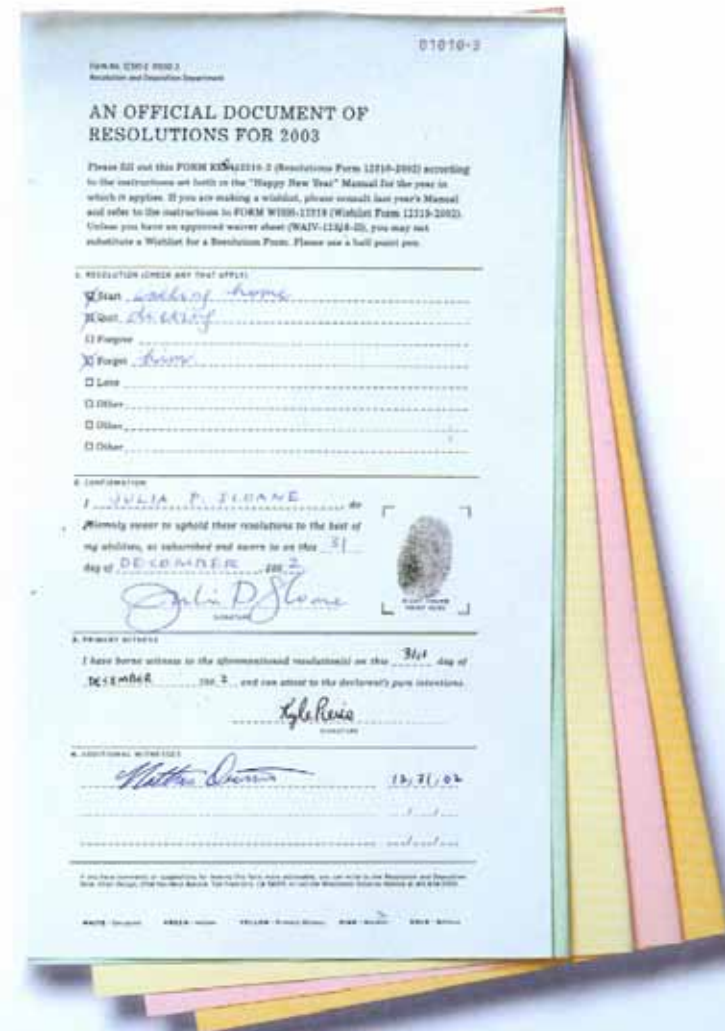 01010-3
Resolution and Deposition Department
AN OFFICIAL DOCUMENT OF
RESOLUTIONS FOR 2003
Please fill out this FORM (Resolutions Form 12310-2002) according
to the instructions set forth in the "Happy New Year" Manual for the year in
which it applies. If you are making a wishlist, please consult last year's Manual
and refer to the instructions to FORM (Wishlist Form 12319-2002).
Unless you have an approved waiver sheet you may not
substitute a Wishlist for a Resolution Form. Please use a ball point pen.
RESOLUTION (CHECK ANY THAT APPLY)
Start walking home
Quit
Forgive
Forget him
Love
Other
Other
Other
CONFIRMATION
I JULIA P. SLOANE do
solemnly swear to uphold these resolutions to the best of
my abilities, as subscribed and sworn to on this 31
day of DECEMBER 200 2
Julia P Sloane
SIGNATURE
RIGHT THUMB
PRINT HERE
PRIMARY WITNESS
I have borne witness to the aforementioned resolution(s) on this 31st day of
DECEMBER 200 2 and can attest to the declarant's pure intentions.
SIGNATURE
4. ADDITIONAL WITNESSES
12/31/02
WHITE GREEN YELLOW PINK GOLD